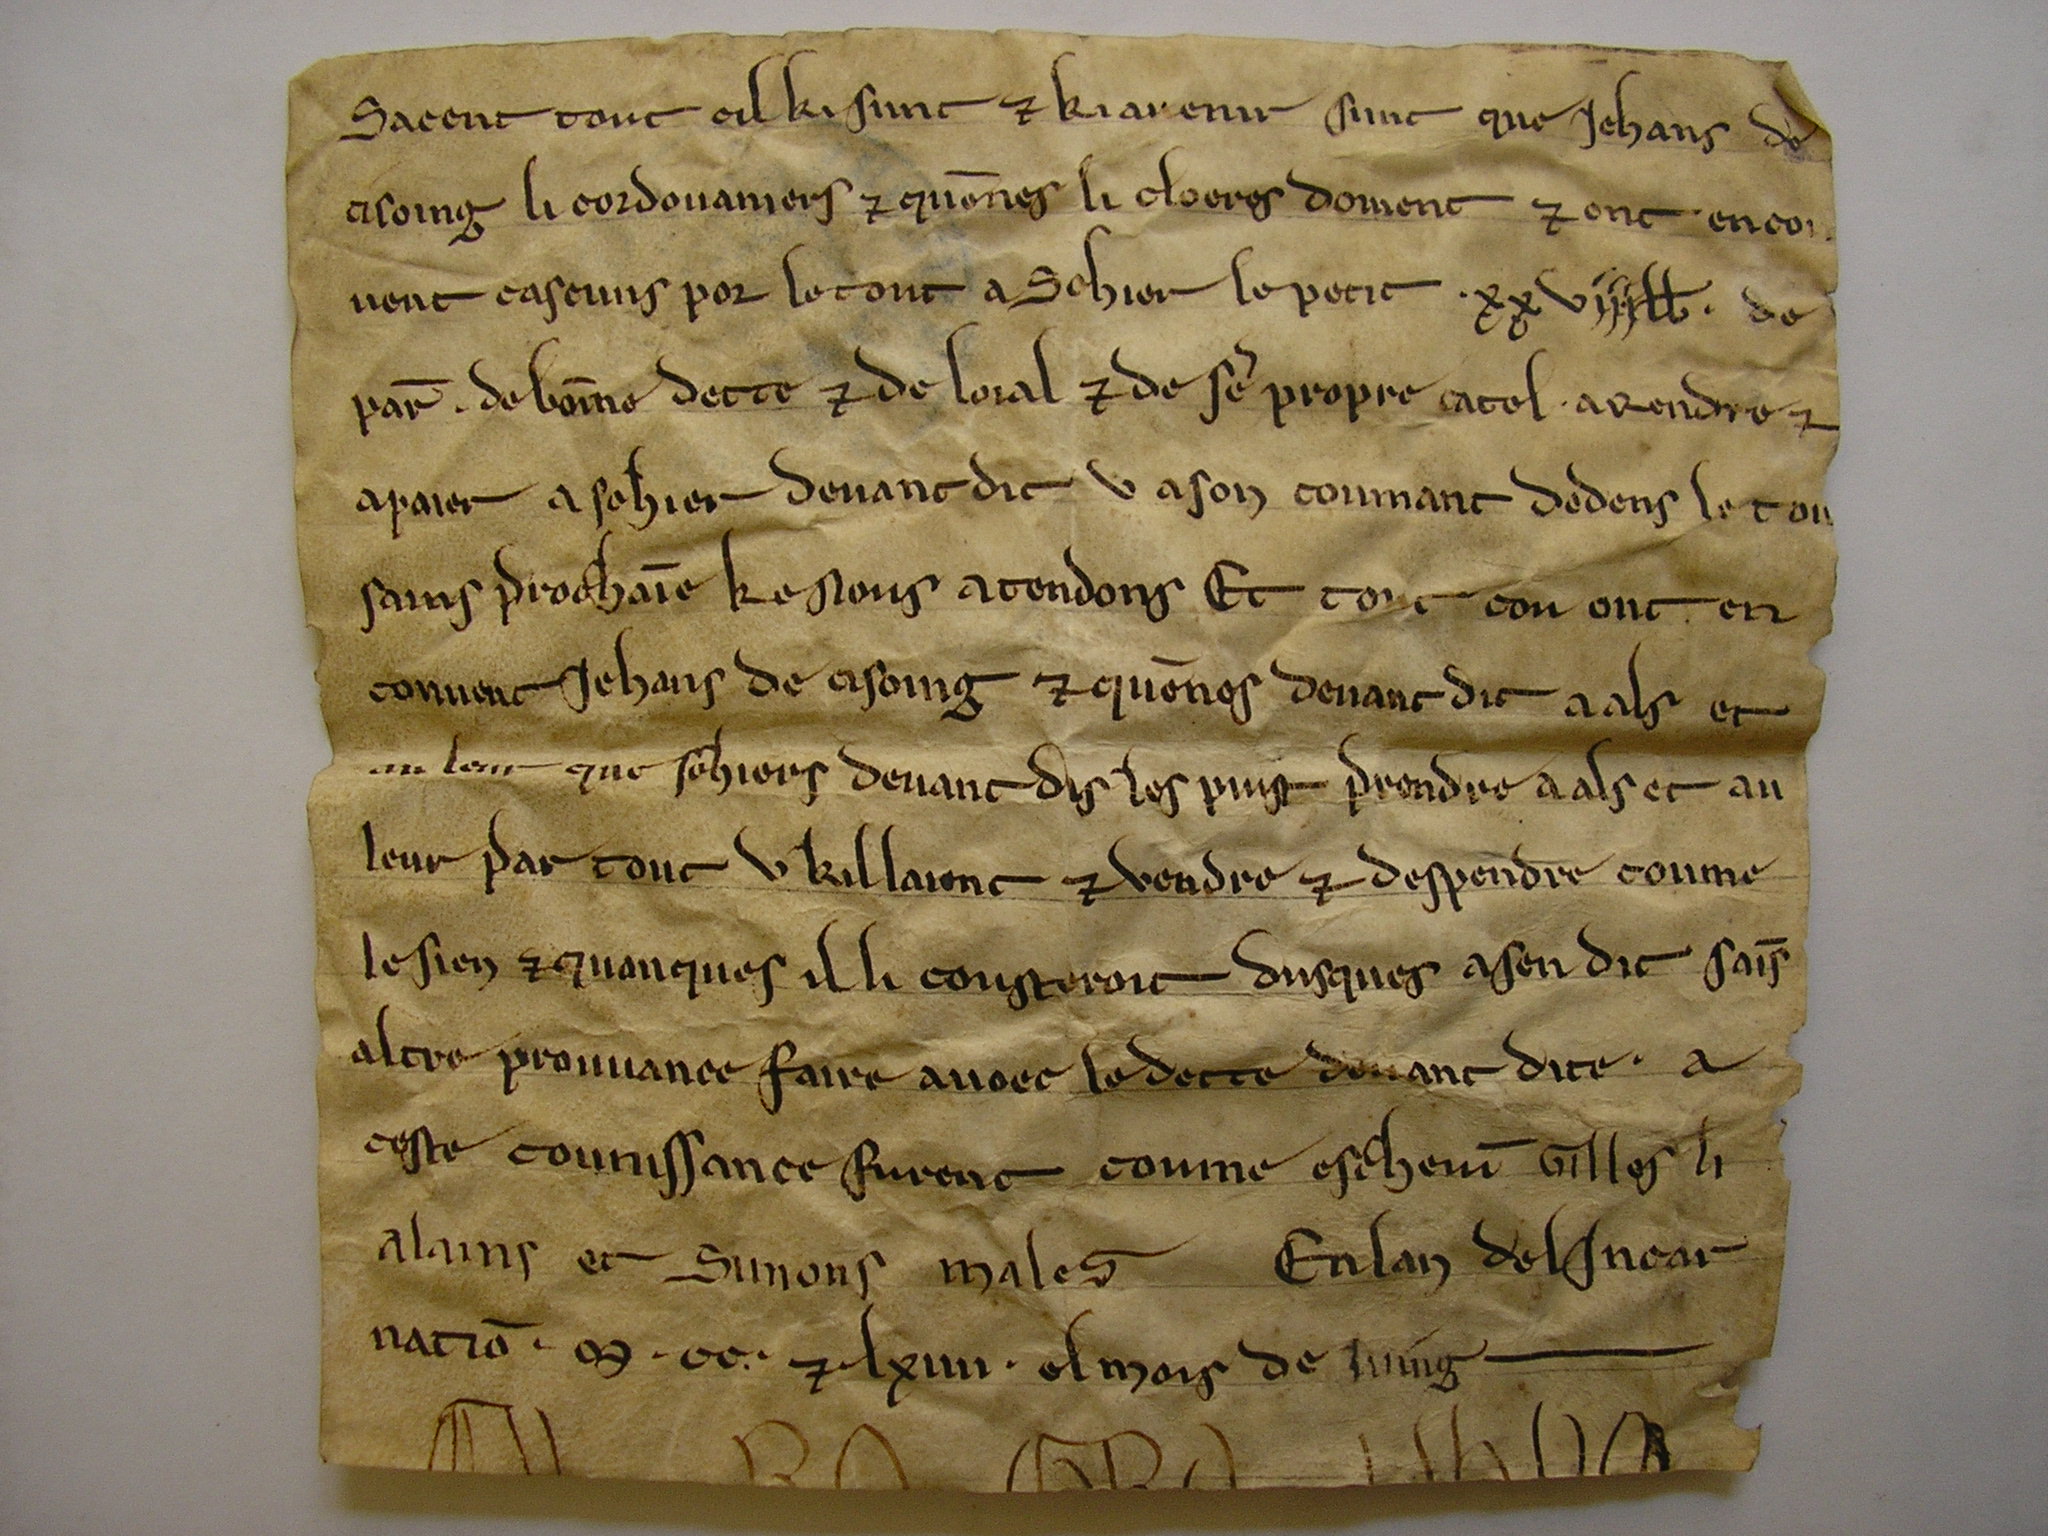 Sacent tout cil ki sunt ⁊ ki avenir sunt que Jehans de
cisoing li cordouaniers ⁊ quōnes li cloeres doivent ⁊ ont encon
vent cascuns por le tout a Sohier le petit .xxviiij lb. de
par̄. de bōine dette ⁊ de loial ⁊ de se propre catel. a rendre ⁊
a paier a sohier devant dit v a son coumant dedens le tou
sains prochaīe ke nous atendons Et tout cou ont en
convent Jehans de cisoing ⁊ quōnes devant dit a als et
au leur que sohiers devant dis les puist prendre a als et au
leur par tout v kil laient ⁊ vendre ⁊ despendre coume
le sien ⁊ quanques il li cousteroit dusques a sen dit sāis
altre prouvance faire avoec le dette devant dite. a
ceste counissance furent coume eschevī Gilles li
alains et Simons males En lan del Incar
natiō. M. cc. ⁊ lxiiii. el mois de iuing